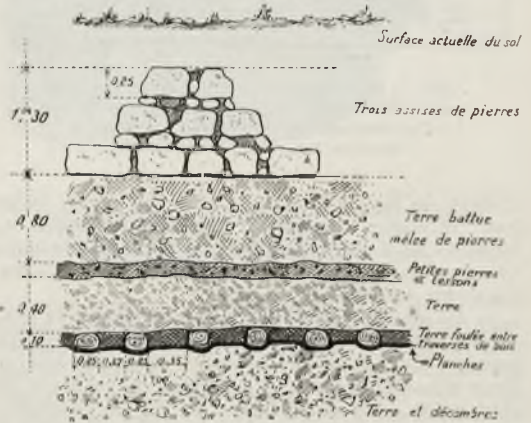 Surface actuelle du sol
0,25
Trois assises de pierres
Terre battue
mêlée de pierres
0,80
Petites pierres
et tessons
Terre
0,40
Terre foulée entre
traverses de bois
0,10
Planches
0,25 0,35
Terre et décombres